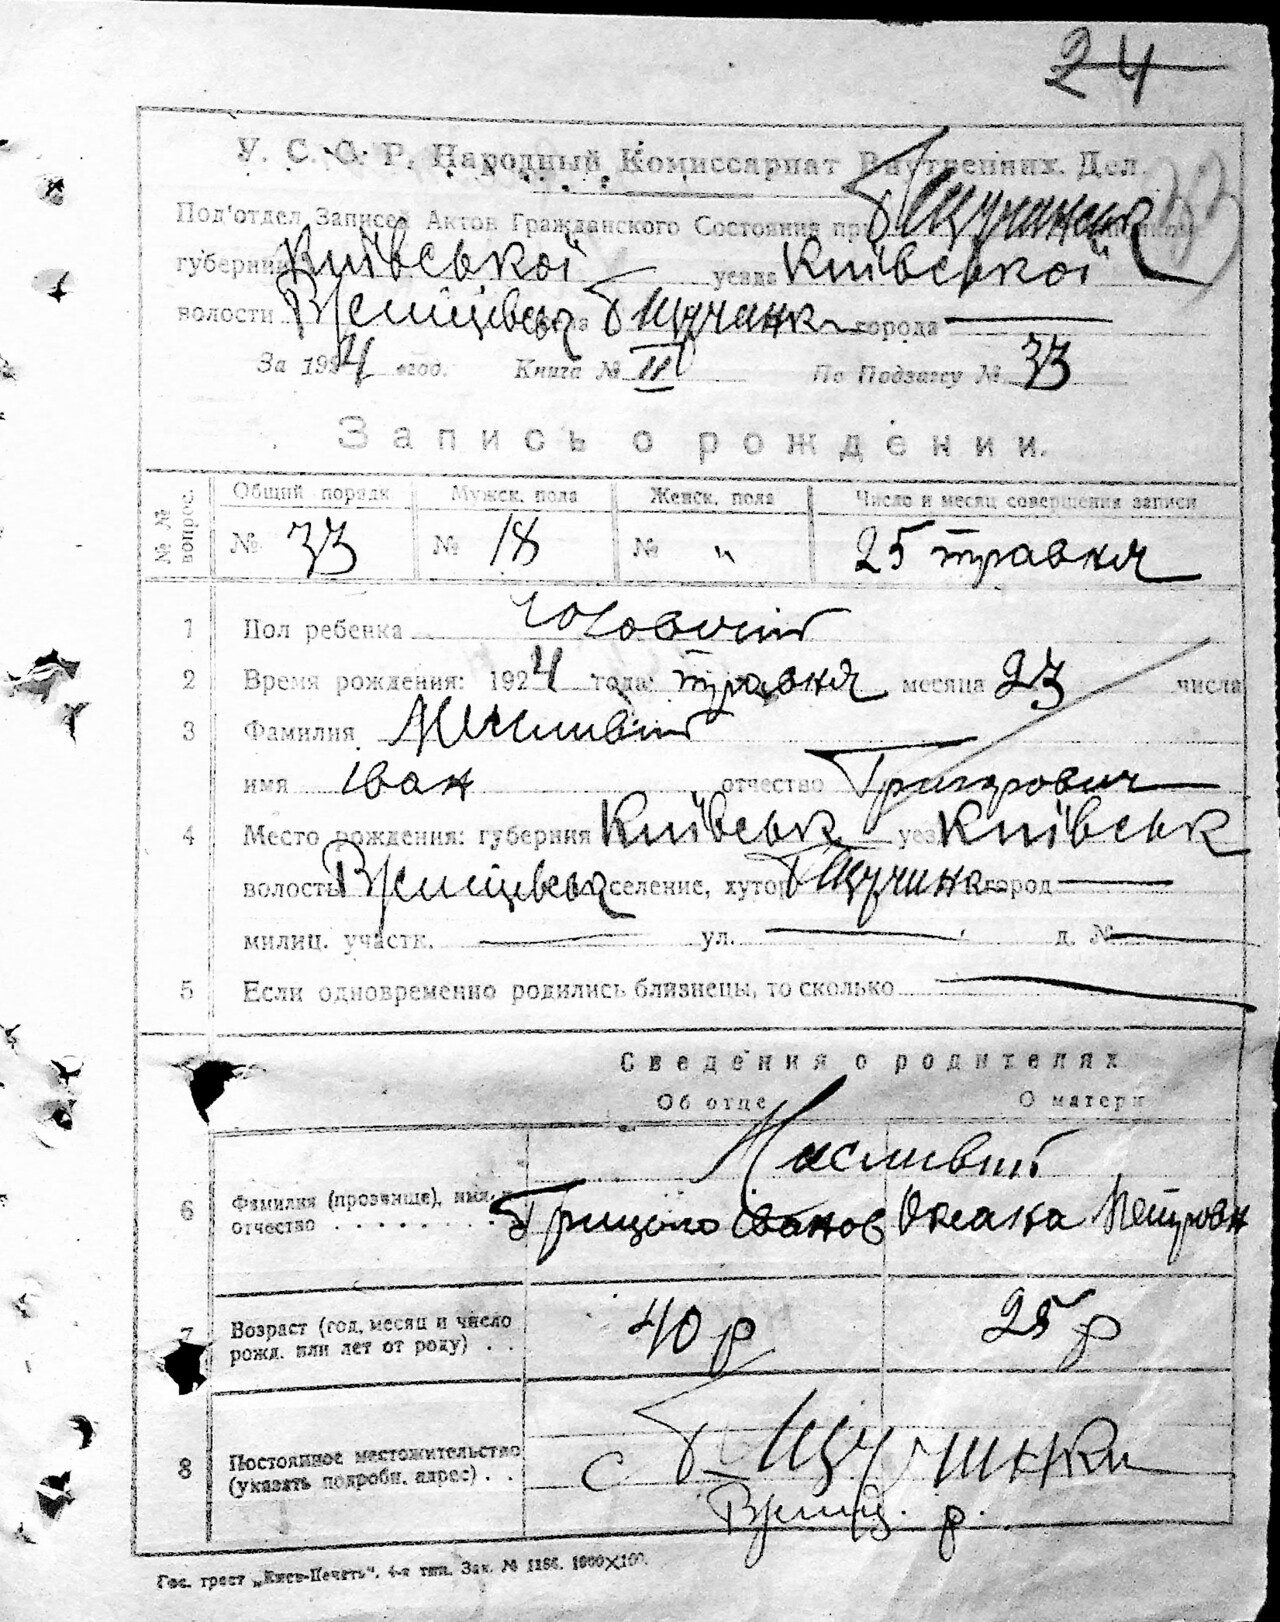 24
У. С. С. Р. Народный Комиссариат Внутренних Дел.
33
Под'отдел Записей Актов Гражданского Состояния при
губернии Київської уезда Київської
волости села города —
За 1924 год. Книга № III По Подзагсу № 33
Запись о рождении.
№ № вопрос.
Общий порядк. Мужск. пола Женск. пола Число и месяц совершения записи
№ 33 № 18 № „ 25 травня
1 Пол ребенка Чоловічий
2 Время рождения: 1924 года: травня месяца 23 числа
3 Фамилия Масливий
имя Іван отчество Григорович
4 Место рождения: губерния Київськ уезд Київськ
волость селение, хутор город —
милиц. участк. — ул. — д. № —
5 Если одновременно родились близнецы, то сколько —
Сведения о родителях
Об отце О матери
Масливий
6 Фамилия (прозвище), имя и отчество . . . . . . . . Грицько Іванов Оксана Петровн
7 Возраст (год, месяц и число рожд. или лет от роду) . . 40 р 25 р
8 Постоянное местожительство (указать подробн. адрес) . . с
р.
Гос. трест „Киев-Печать". 4-я тип. Зак. № 1186. 1000×100.